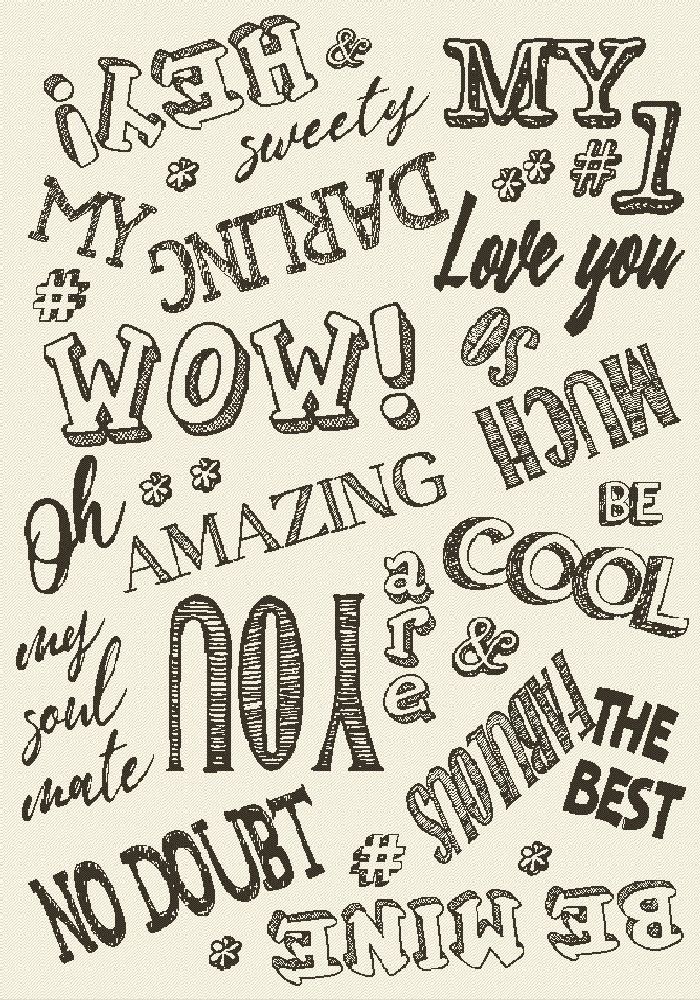 HEY!
&
sweety
MY
#1
MY
DARLING
#
Love you
WOW!
SO
MUCH
Oh
AMAZING
BE
COOL
are
&
my
soul
mate
YOU
FABULOUS
THE
BEST
NO DOUBT
#
BE MINE